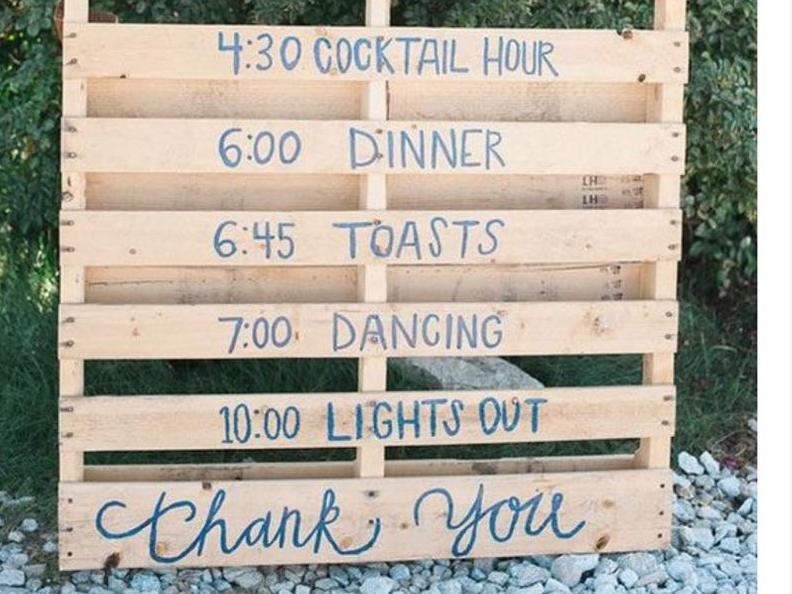 4:30 COCKTAIL HOUR
6:00 DINNER
LH
LH
6:45 TOASTS
7:00 DANCING
10:00 LIGHTS OUT
Thank You